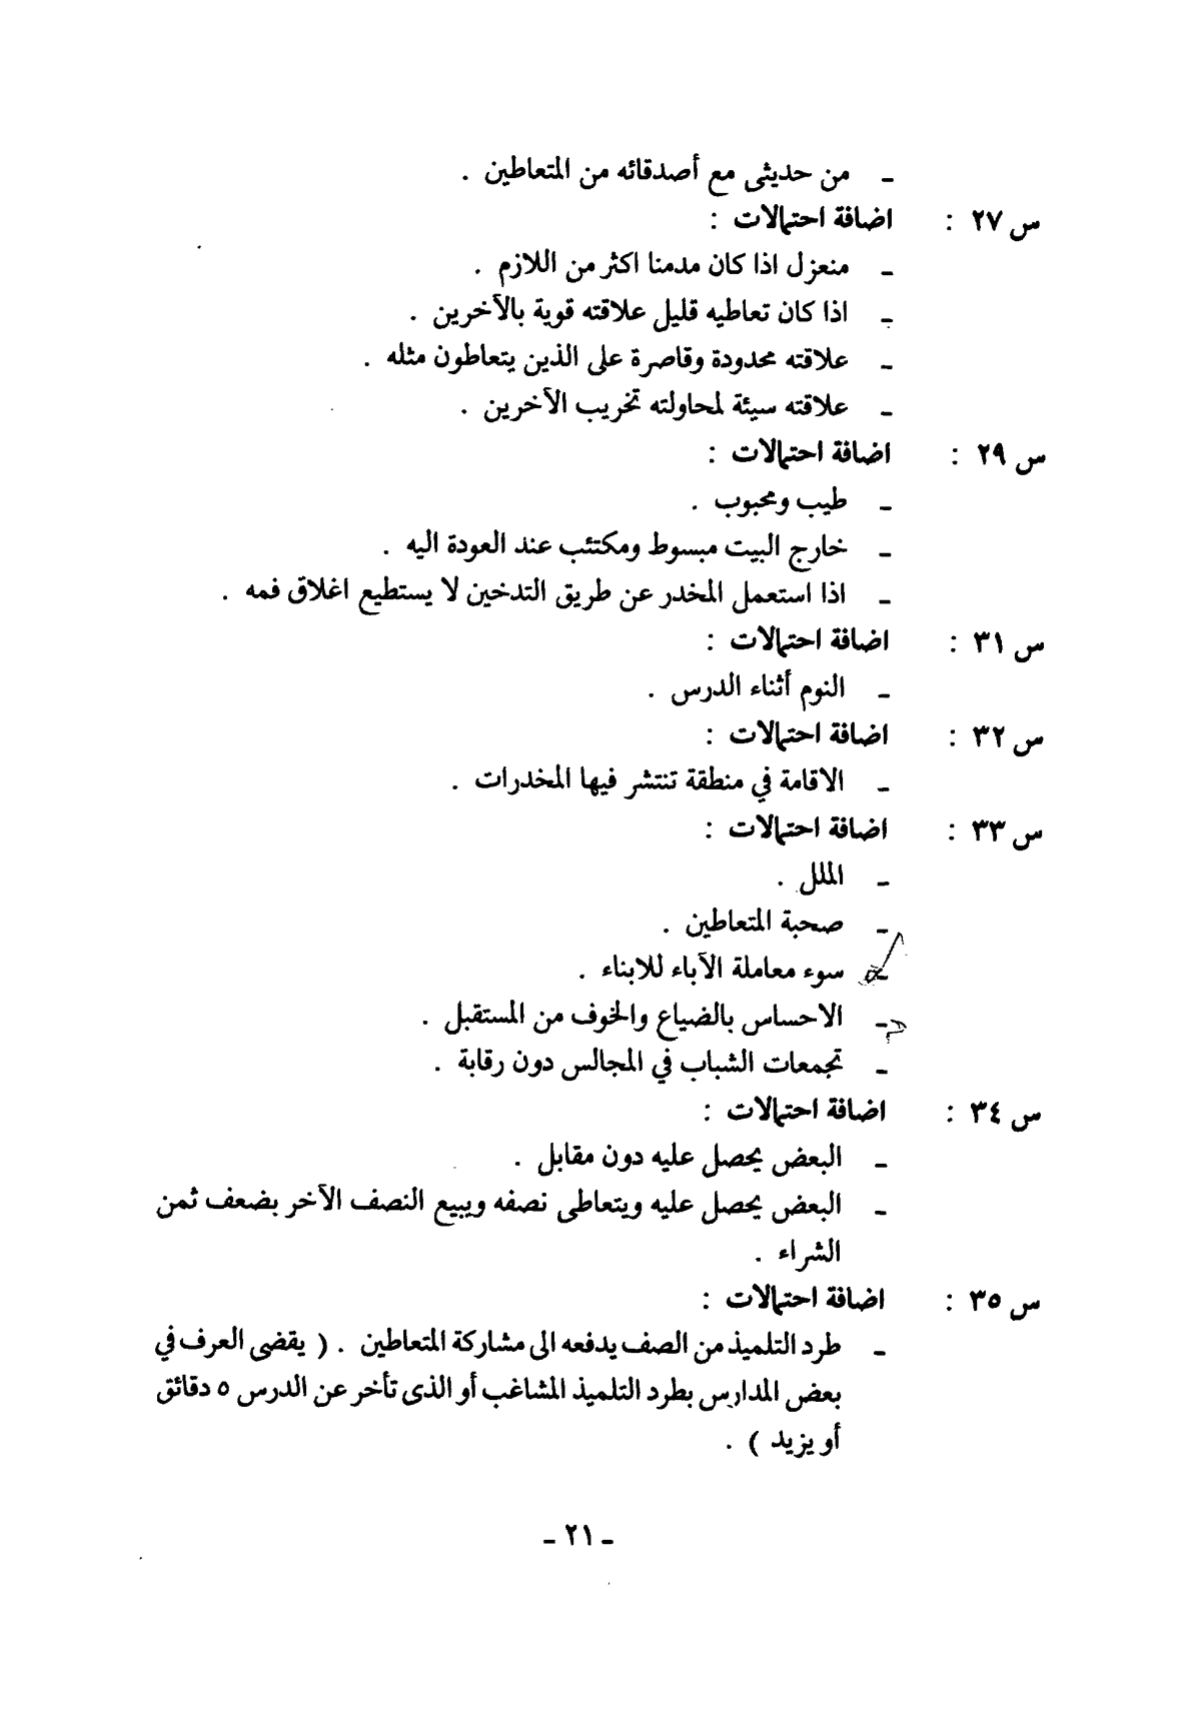 ـ من حديثى مع أصدقائه من المتعاطين .
س ٢٧ : اضافة احتمالات :
ـ منعزل اذا كان مدمنا اكثر من اللازم .
ـ اذا كان تعاطيه قليل علاقته قوية بالآخرين .
ـ علاقته محدودة وقاصرة على الذين يتعاطون مثله .
ـ علاقته سيئة لمحاولته تخريب الآخرين .
س ٢٩ : اضافة احتمالات :
ـ طيب ومحبوب .
ـ خارج البيت مبسوط ومكتئب عند العودة اليه .
ـ اذا استعمل المخدر عن طريق التدخين لا يستطيع اغلاق فمه .
س ٣١ : اضافة احتمالات :
ـ النوم أثناء الدرس .
س ٣٢ : اضافة احتمالات :
ـ الاقامة في منطقة تنتشر فيها المخدرات .
س ٣٣ : اضافة احتمالات :
ـ الملل .
ـ صحبة المتعاطين .
ـ سوء معاملة الآباء للابناء .
ـ الاحساس بالضياع والخوف من المستقبل .
ـ تجمعات الشباب في المجالس دون رقابة .
س ٣٤ : اضافة احتمالات :
ـ البعض يحصل عليه دون مقابل .
ـ البعض يحصل عليه ويتعاطى نصفه ويبيع النصف الآخر بضعف ثمن
الشراء .
س ٣٥ : اضافة احتمالات :
ـ طرد التلميذ من الصف يدفعه الى مشاركة المتعاطين . ( يقضى العرف في
بعض المدارس بطرد التلميذ المشاغب أو الذى تأخر عن الدرس ٥ دقائق
أو يزيد ) .
ـ ٢١ ـ